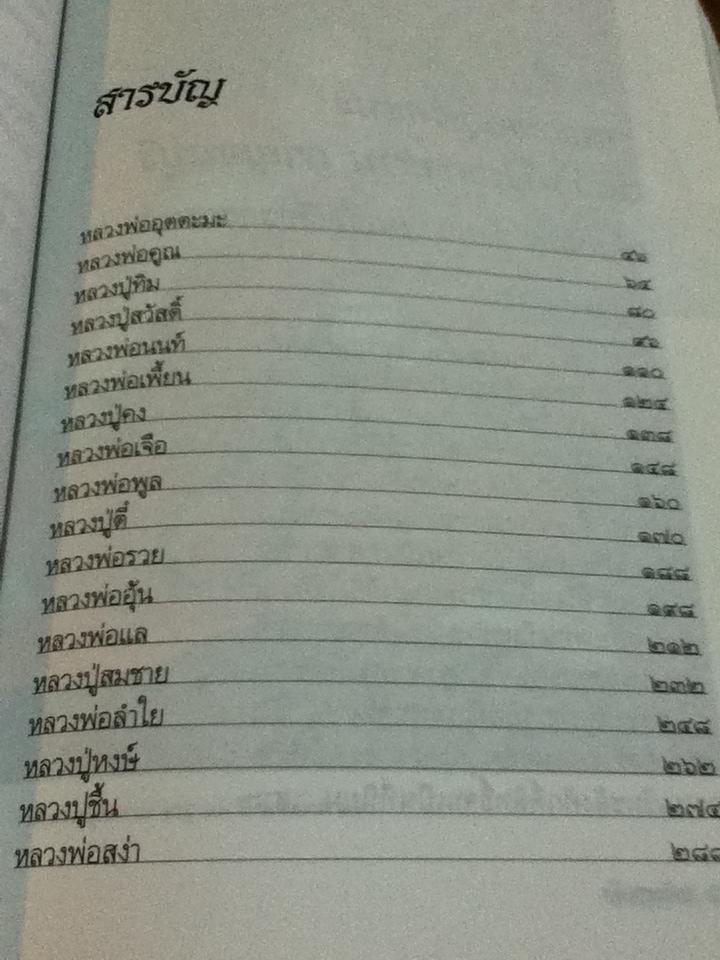 สารบัญ
หลวงพ่ออุตตะมะ
หลวงพ่อคูณ ๖๔
หลวงปู่ทิม ๘๐
หลวงปู่สวัสดิ์ ๙๖
หลวงพ่อนนท์ ๑๑๐
หลวงพ่อเพี้ยน ๑๒๔
หลวงปู่คง ๑๓๘
หลวงพ่อเจือ ๑๔๘
หลวงพ่อพูล ๑๖๐
หลวงปู่ตี๋ ๑๗๐
หลวงพ่อรวย ๑๘๘
หลวงพ่ออุ้น ๑๙๘
หลวงพ่อแล ๒๑๒
หลวงปู่สมชาย ๒๓๒
หลวงพ่อลำไย ๒๔๘
หลวงปู่หงษ์ ๒๖๒
หลวงปู่ชื้น ๒๗๔
หลวงพ่อสง่า ๒๘๘